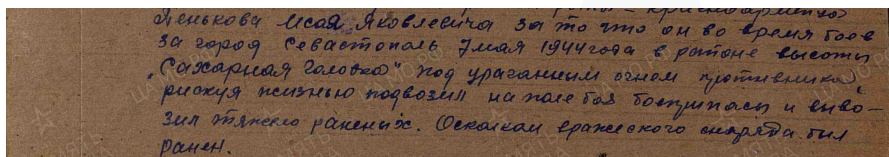 Пенькова Исая Яковлевича за то что он во время боев
за город Севастополь 7 мая 1944 года в районе высоты
„Сахарная Головка" под ураганным огнем противника
рискуя жизнью подвозил на поле боя боеприпасы и выво-
зил тяжело раненых. Осколком вражеского снаряда был
ранен.